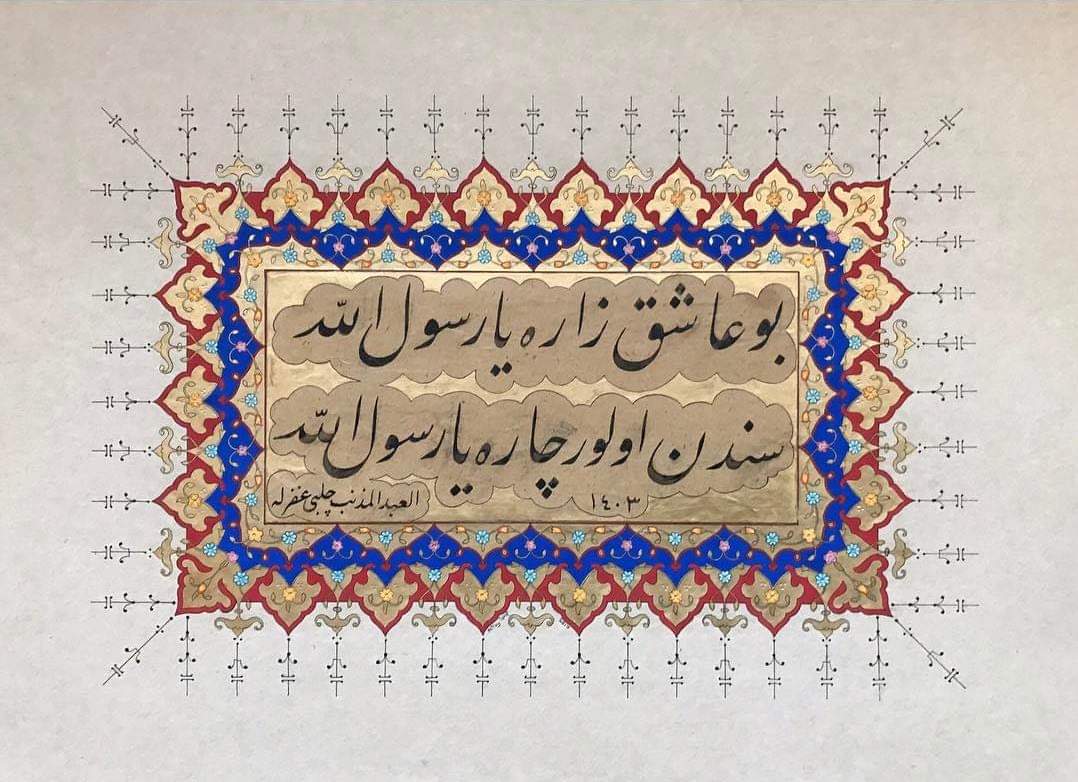 بو عاشق زاره یا رسول اللّٰه
سندن اولور چاره یا رسول اللّٰه
١٤٠٣
العبد المذنب چلبی غفرله